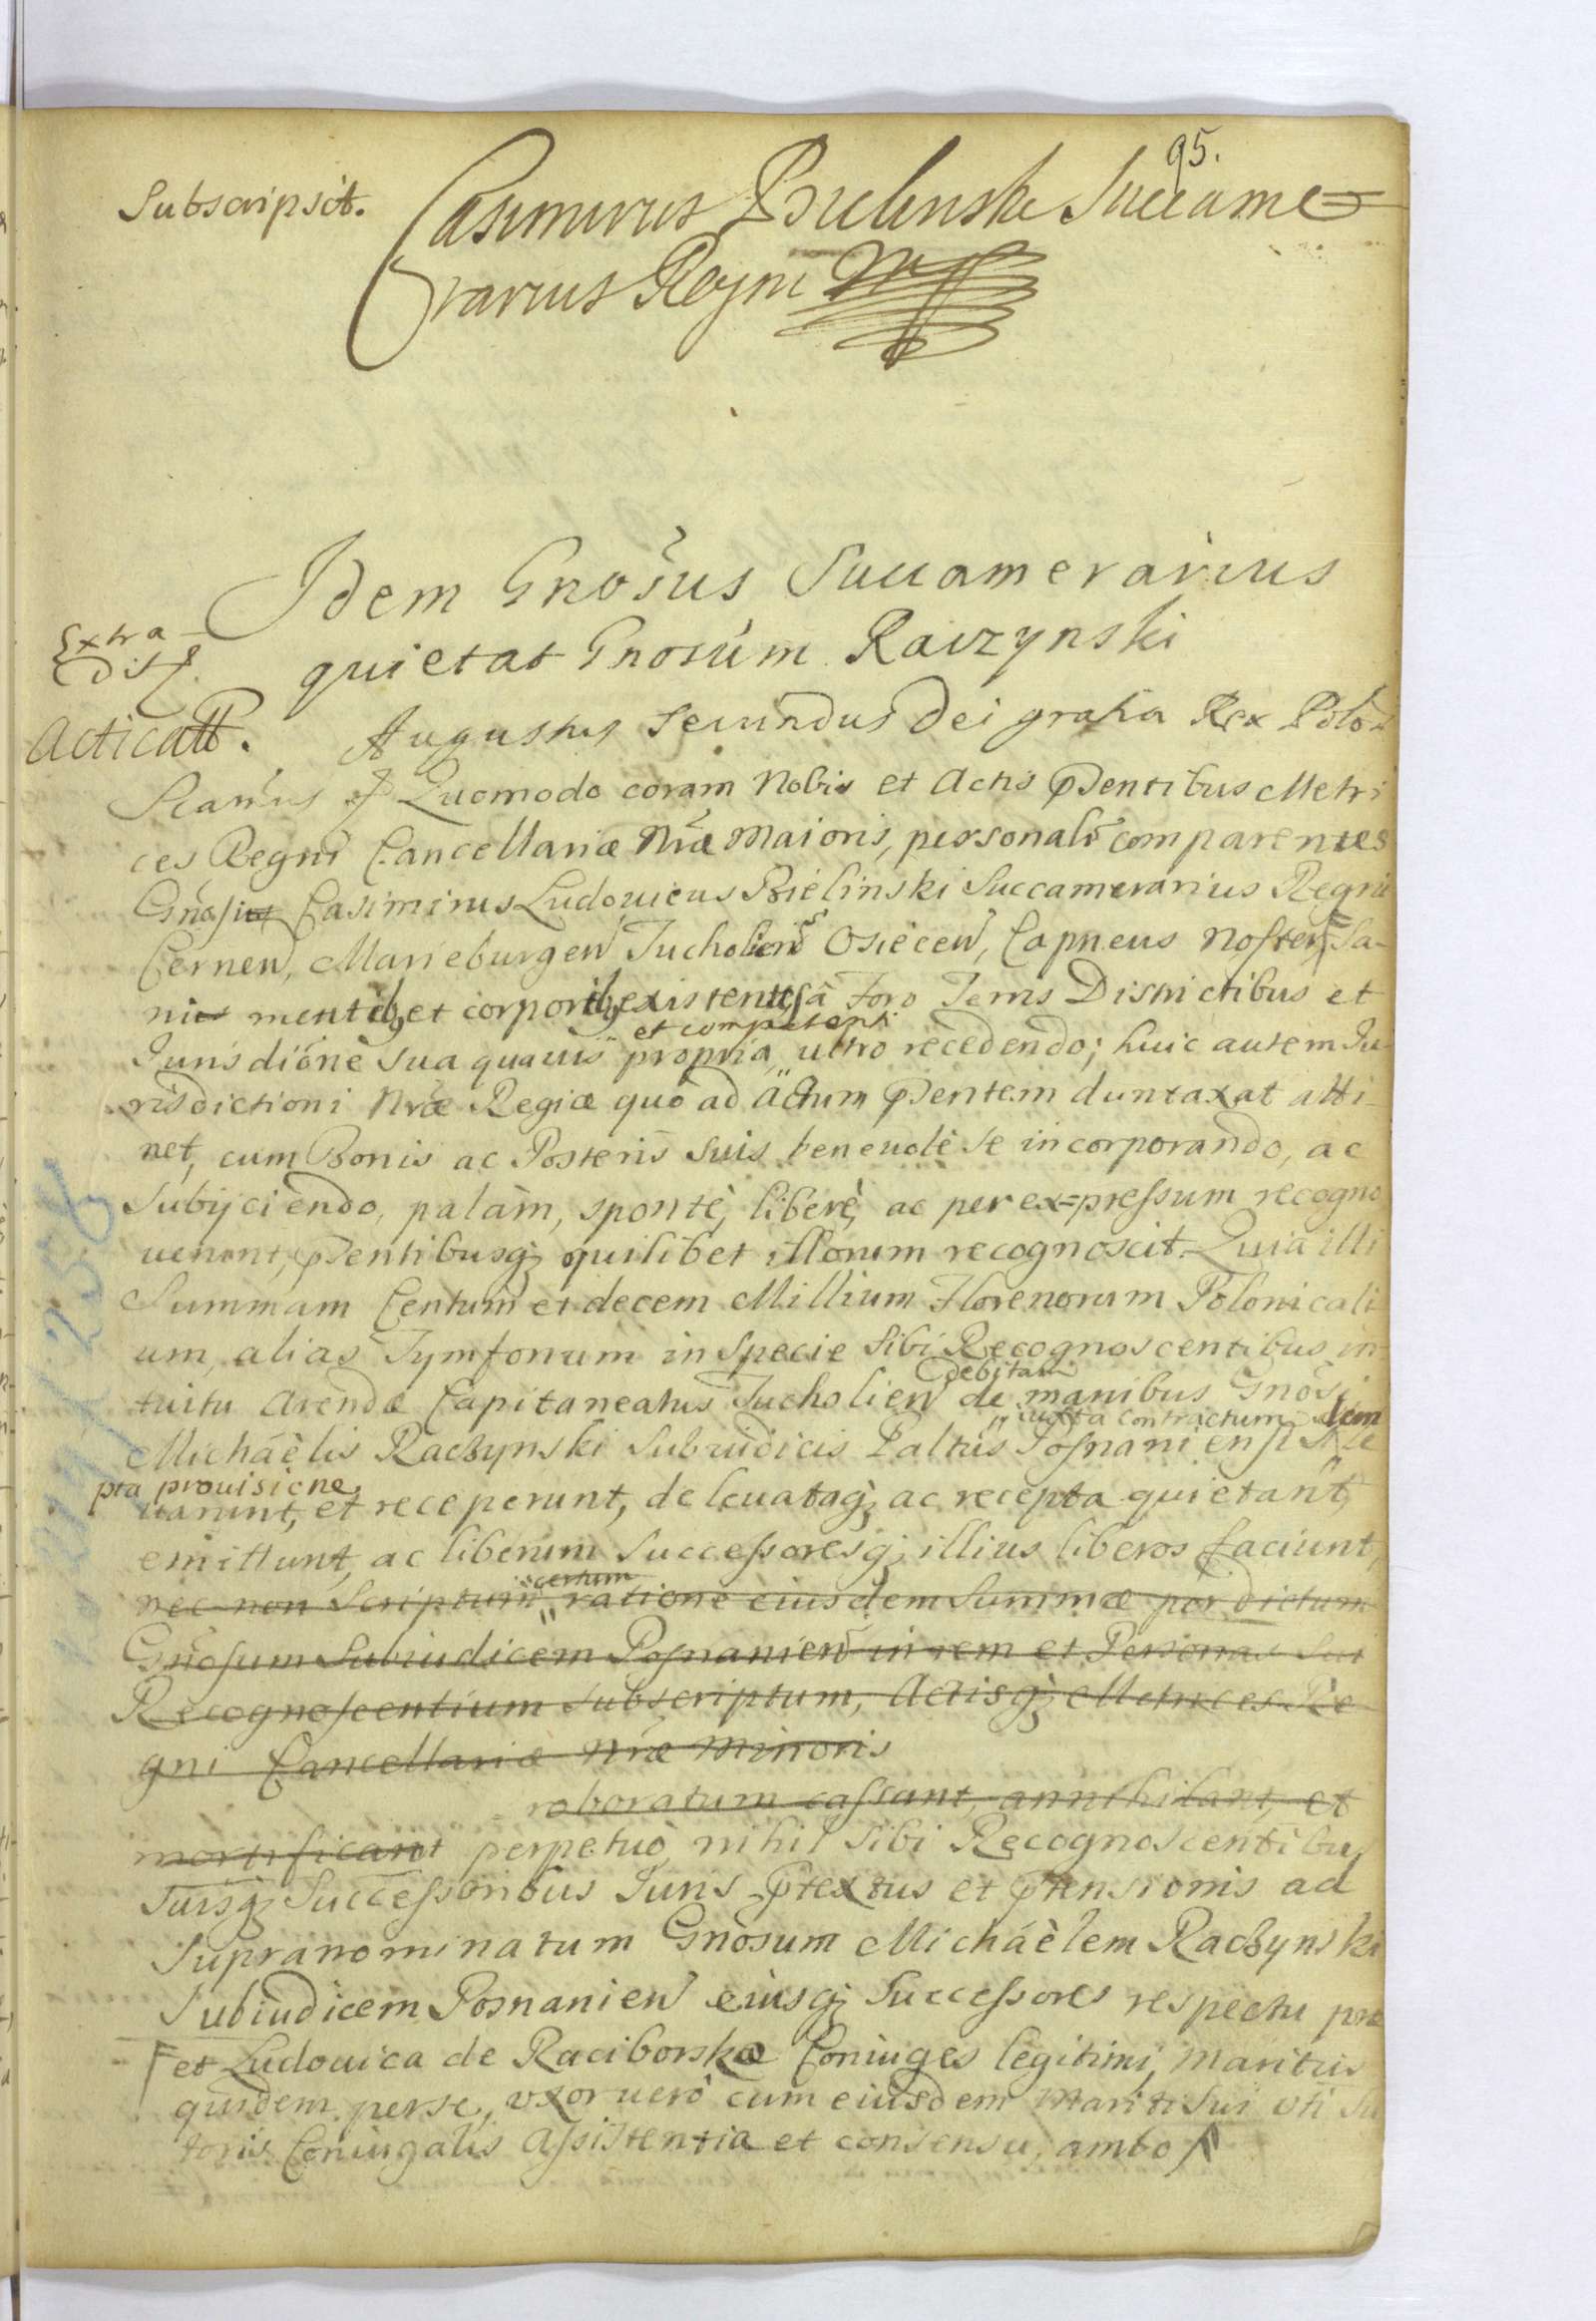 95.
Subscripsit. Casimirus Bielinski Succame=
rarius Regni
Idem Gnosus Succamerarius
Extra
dis
quietat Gnosum Raczynski
Acticatt. Augustus Secundus Dei gratia Rex Polo
Quomodo coram Nobis et Actis pntibus Metri
ces Regni Cancellariæ Nræ Maioris, personalr comparentes
Gnosi Casimirus Ludouicus Bielinski Succamerarius Regni
Cernen, Marieburgen Tucholien Osiecen, Capneus noster Sa-
ni mentibq et corporibq existentes à Foro Terris Districtibus et
et competenti
Jurisdióne sua quauis propria, ultro recedendo; huic autem Ju-
risdictioni Nræ Regiæ quò ad Actum pntem duntaxat atti-
net, cum Bonis ac Posteris suis beneuolè se incorporando, ac
subijciendo, palàm, spontè, liberè, ac per ex=pressum recogno
uerunt, pntibusq quilibet illorum recognoscit. Quia illi
Summam Centum et decem Millium Florenorum Polonicali
um, alias Tymfonum in Specie sibi Recognoscentibus in
debitam
tuitu Arendæ Capitaneatus Tucholien de manibus Gnosi
iuxta contractum
Micháëlis Raczynski Subiudicis Posnanien
pra prouisione
uarunt, et receperunt, de leuataq ac recepta quietant,
emittunt, ac liberum Successoresq illius liberos faciunt,
certum
nec non Scriptum ratione eiusdem Summæ per dictum
Gnosum Subiudicem Posnanien in rem et Personas Sui
Recognoscentium subscriptum, Actisq Metrices Re
gni Cancellariæ Nræ Minoris
roboratum cassant, annihilant, et
mortificant perpetuò nihil sibi Recognoscentibus
suisq Successoribus Juris ptextus et ptensionis ad
supranominatum Gnosum Micháëlem Raczynski
Subiudicem Posnanien eiusq Successores respectu præ
et Ludouica de Raciborska Coniuges legitimi, maritus
quidem per se, uxor verò cum eiusdem Mariti Sui uti Tu
toris Coniugalis Assistentia et consensu, ambo